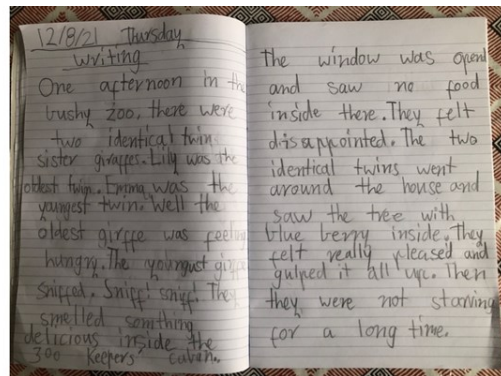 12/8/21 Thursday
Writing
One afternoon in the
bushy zoo, there were
two identical twin
sister giraffes. Lily was the
oldest twin. Emma was the
youngest twin. Well the
oldest girffe was feeling
hungry. The youngust giraffe
sniffed. Sniff! sniff! They
smelled somthing
delicious inside the
zoo keepers' cabin.
The window was opend
and saw no food
inside there. They felt
disappointed. The two
identical twins went
around the house and
saw the tree with
blue berry inside. They
felt really pleased and
gulped it all up. Then
they were not starving
for a long time.